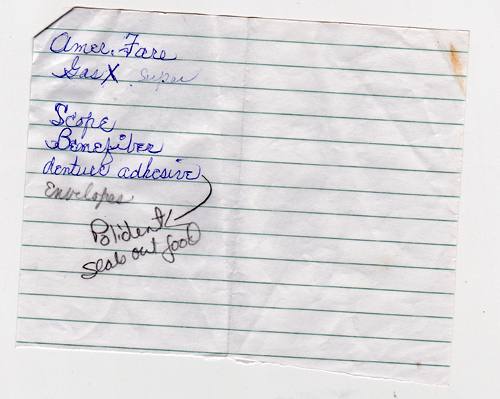 Amer. Fare
Gas X Super
Scope
Benefiber
denture adhesive
Envelopes
Polident
seals out food